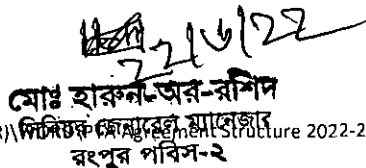 22/6/22
মোঃ হারুন-অর-রশিদ
সিনিয়র জেনারেল ম্যানেজার
Agreement Structure 2022-2
রংপুর পবিস-২